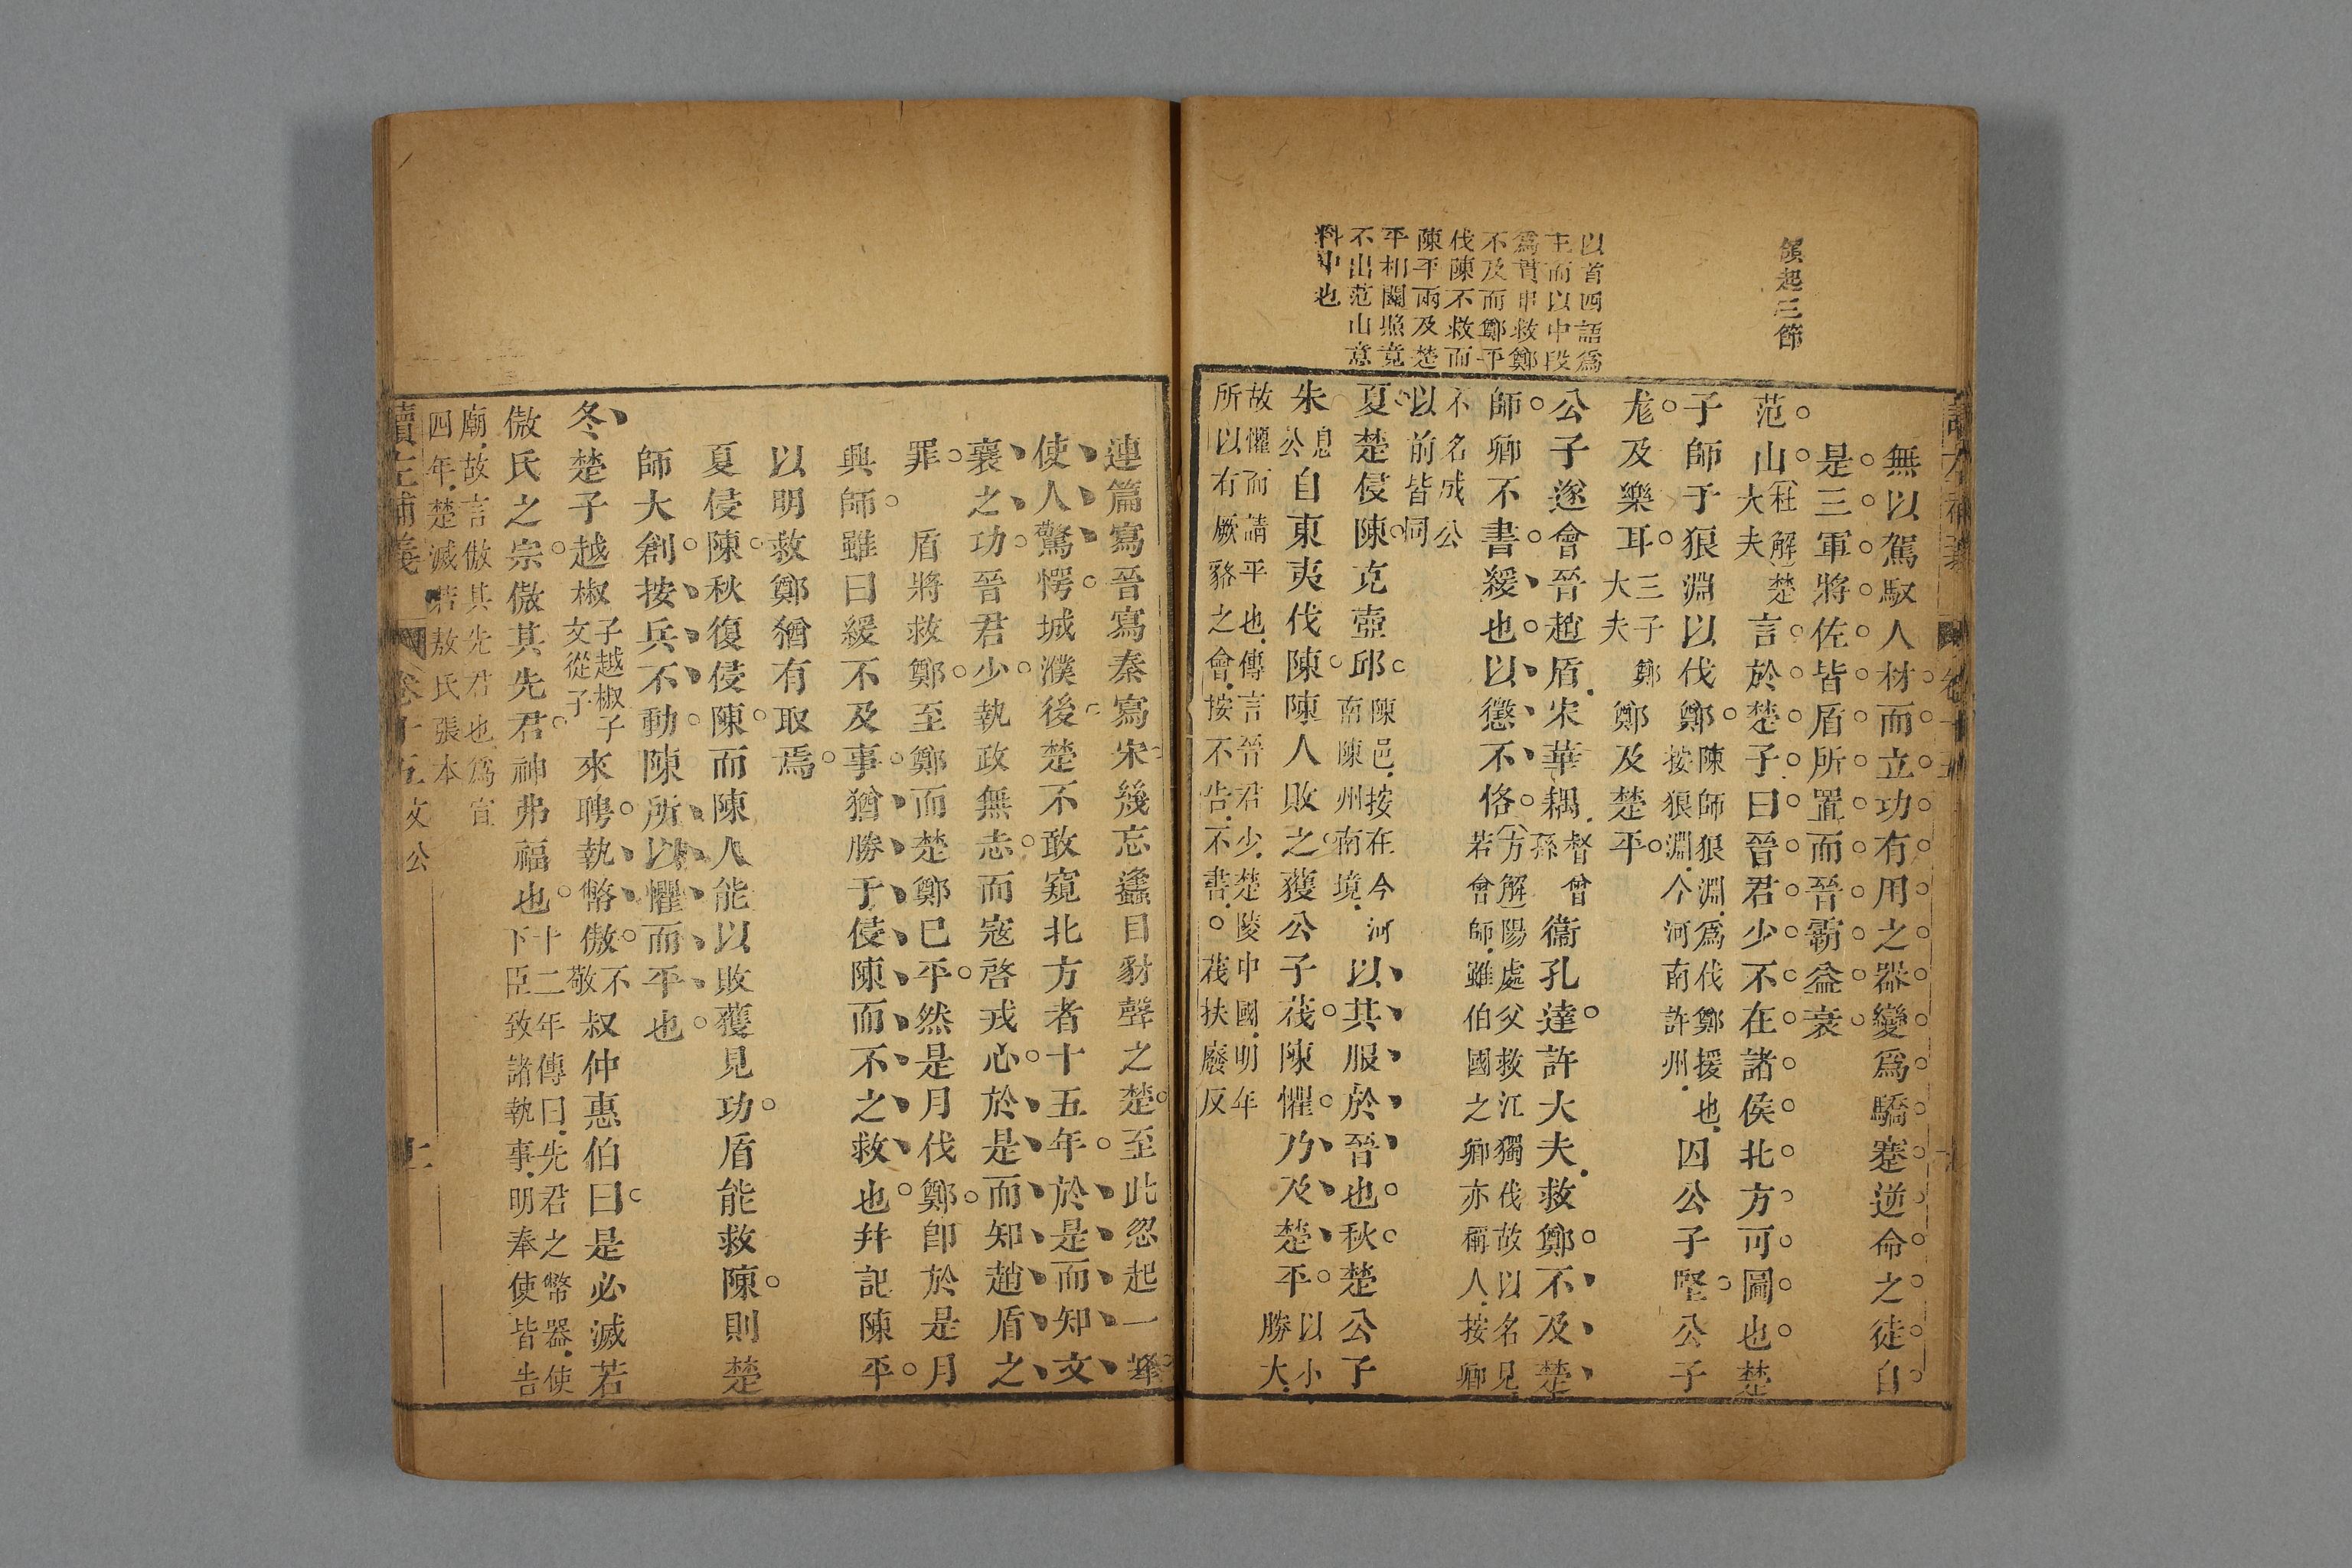 領起三節
以首四語爲
主而以中段
爲貫串救鄭
不及而鄭平
伐陳不救而
陳平兩及楚
平相關照竟
不出范山意
料中也
無以駕馭人材而立功有用之器變爲驕蹇逆命之徒自
是三軍將佐皆盾所置而晉霸益衰
范山杜解楚大夫言於楚子曰晉君少不在諸侯北方可圖也楚
子師于狼淵以伐鄭陳師狼淵爲伐鄭援也按狼淵今河南許州囚公子堅公子
尨及樂耳三子鄭大夫鄭及楚平
公子遂會晉趙盾宋華耦督曾孫衞孔達許大夫救鄭不及楚
師卿不書緩也以懲不恪方解陽處父救江獨伐故以名見若會師雖伯國之卿亦稱人按卿
不名成公以前皆同
夏楚侵陳克壺邱陳邑按在今河南陳州南境以其服於晉也秋楚公子
朱息公自東夷伐陳陳人敗之獲公子茷陳懼乃及楚平以小勝大
故懼而請平也傳言晉君少楚陵中國明年
所以有厥貉之會按不告不書○茷扶廢反
連篇寫晉寫秦寫宋幾忘蠭目豺聲之楚至此忽起一峰
使人驚愕城濮後楚不敢窺北方者十五年於是而知文
襄之功晉君少執政無志而寇啓戎心於是而知趙盾之
罪盾將救鄭至鄭而楚鄭已平然是月伐鄭卽於是月
興師雖曰緩不及事猶勝于侵陳而不之救也幷記陳平
以明救鄭猶有取焉
夏侵陳秋復侵陳而陳人能以敗獲見功盾能救陳則楚
師大創按兵不動陳所以懼而平也
冬楚子越椒子越椒子文從子來聘執幣傲不敬叔仲惠伯曰是必滅若
敖氏之宗傲其先君神弗福也十二年傳曰先君之幣器使下臣致諸執事明奉使皆告
廟故言傲其先君也爲宣
四年楚滅若敖氏張本
讀左補義 卷十五 文公